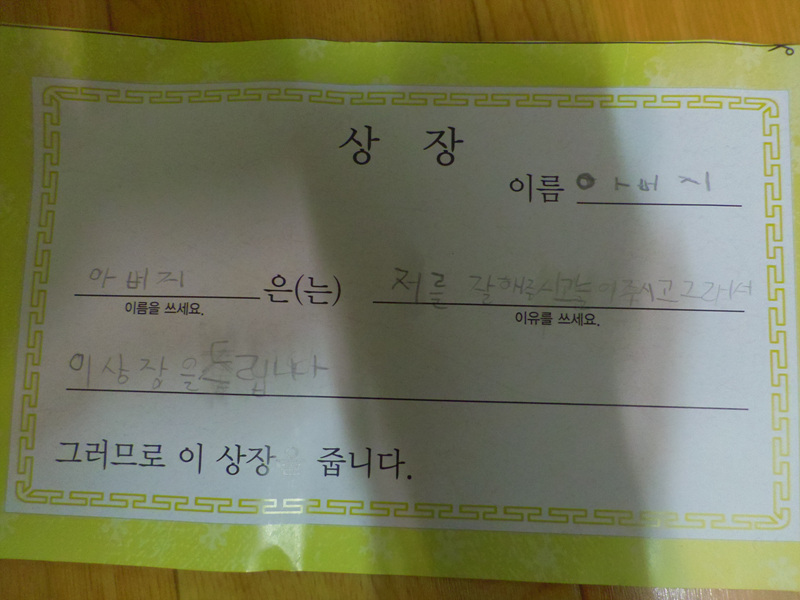 상 장
이름 아버지
아버지 은(는) 저를 잘해주시고 이주시고 그래서
이름을 쓰세요. 이유를 쓰세요.
이상장을 드립니다
그러므로 이 상장을 줍니다.